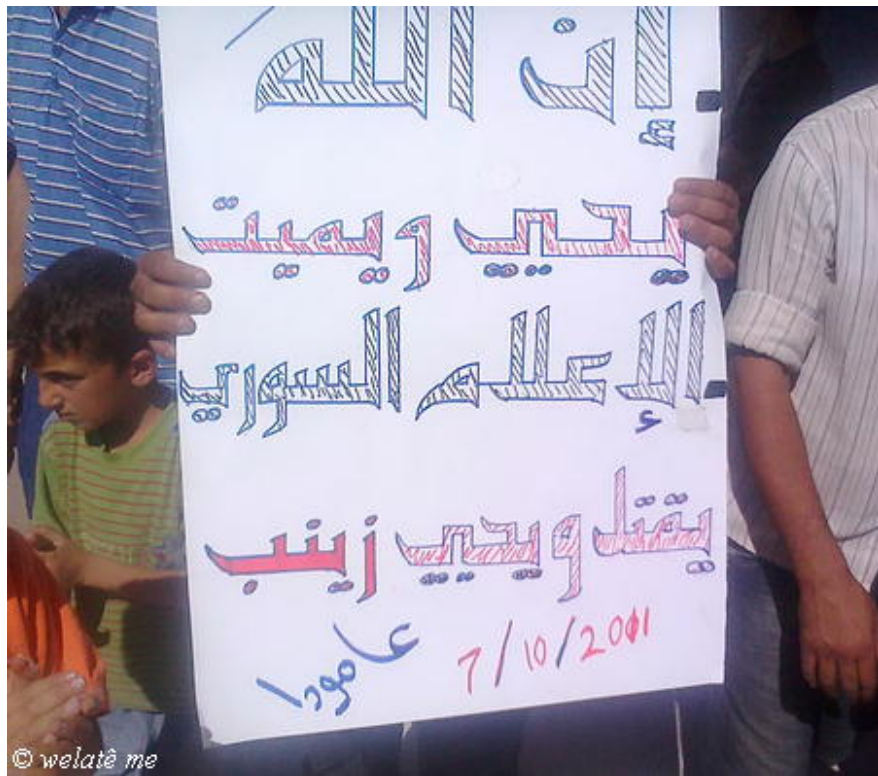 إن الله
يحيي ويميت
الإعلام السوري
يقتل ويحيي زينب
عامودا 7/10/2011
© welatê me